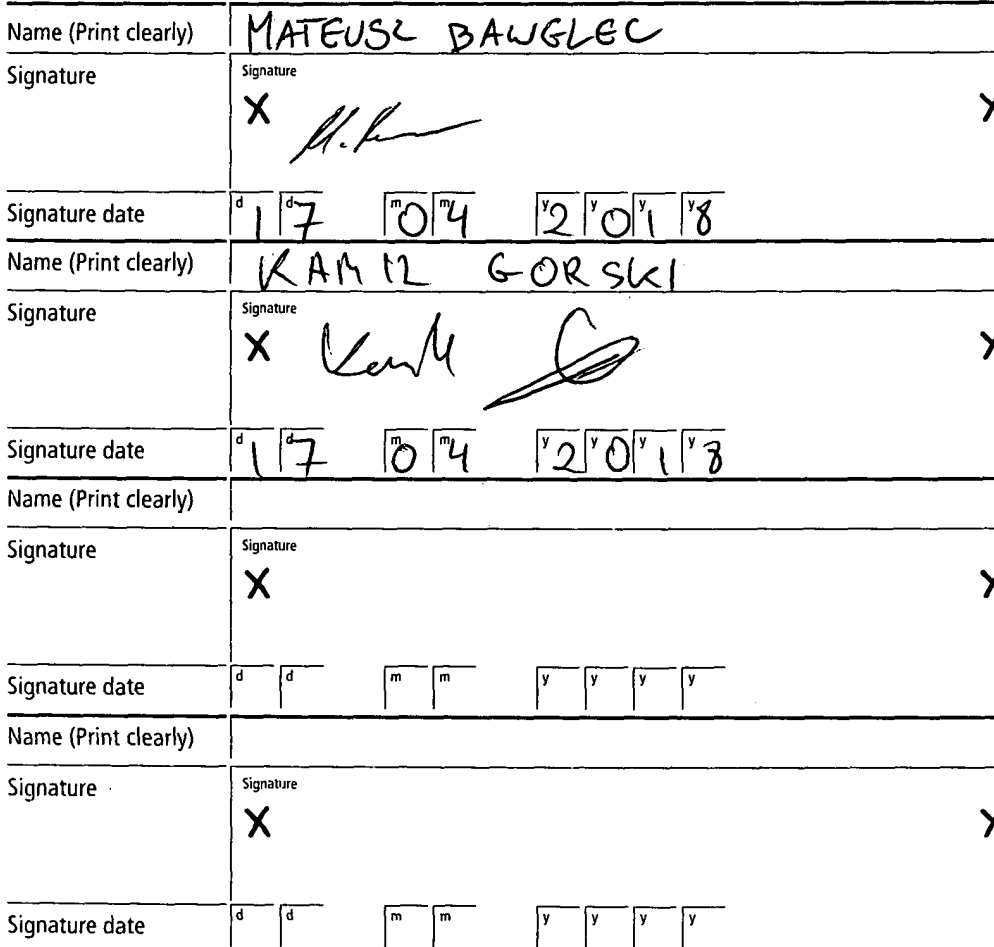 Name (Print clearly) MATEUSZ BAWGLEC
Signature Signature
X
Signature date d 1 d 7 m 0 m 4 y 2 y 0 y 1 y 8
Name (Print clearly) KAMIL GORSKI
Signature Signature
X Kamil
Signature date d 1 d 7 m 0 m 4 y 2 y 0 y 1 y 8
Name (Print clearly)
Signature Signature
X
Signature date d d m m y y y y
Name (Print clearly)
Signature Signature
X
Signature date d d m m y y y y